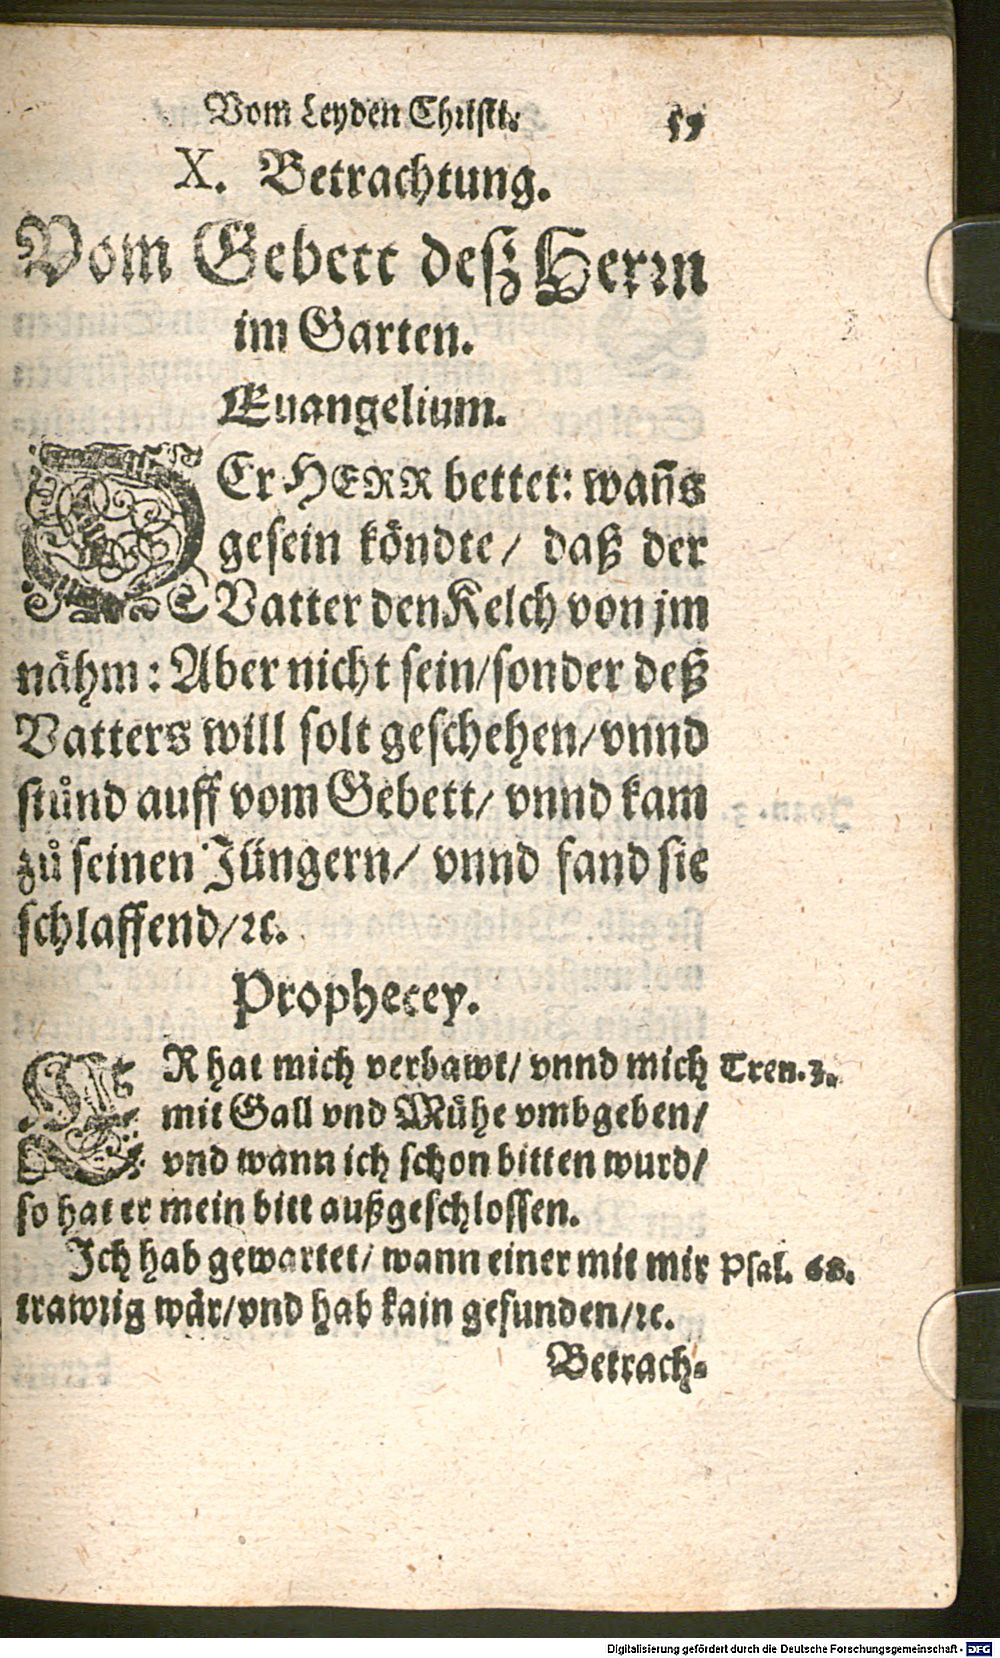 Vom Leyden Christi. 59
X. Betrachtung.
Vom Gebett deß Herrn
im Garten.
Euangelium.
DEr HERR bettet: wañs
gesein köndte/ daß der
Vatter den Kelch von jm
nähm: Aber nicht sein/sonder deß
Vatters will solt geschehen/vnnd
stůnd auff vom Gebett/ vnnd kam
zů seinen Jüngern/ vnnd fand sie
schlaffend/ꝛc.
Prophecey.
ER hat mich verbawt/ vnnd mich Tren. 3.
mit Gall vnd Mühe vmbgeben/
vnd wann ich schon bitten wurd/
so hat er mein bitt außgeschlossen.
Ich hab gewartet/ wann einer mit mir Psal. 68.
trawrig wär/vnd hab kain gefunden/ꝛc.
Betrach-
Digitalisierung gefördert durch die Deutsche Forschungsgemeinschaft - DFG